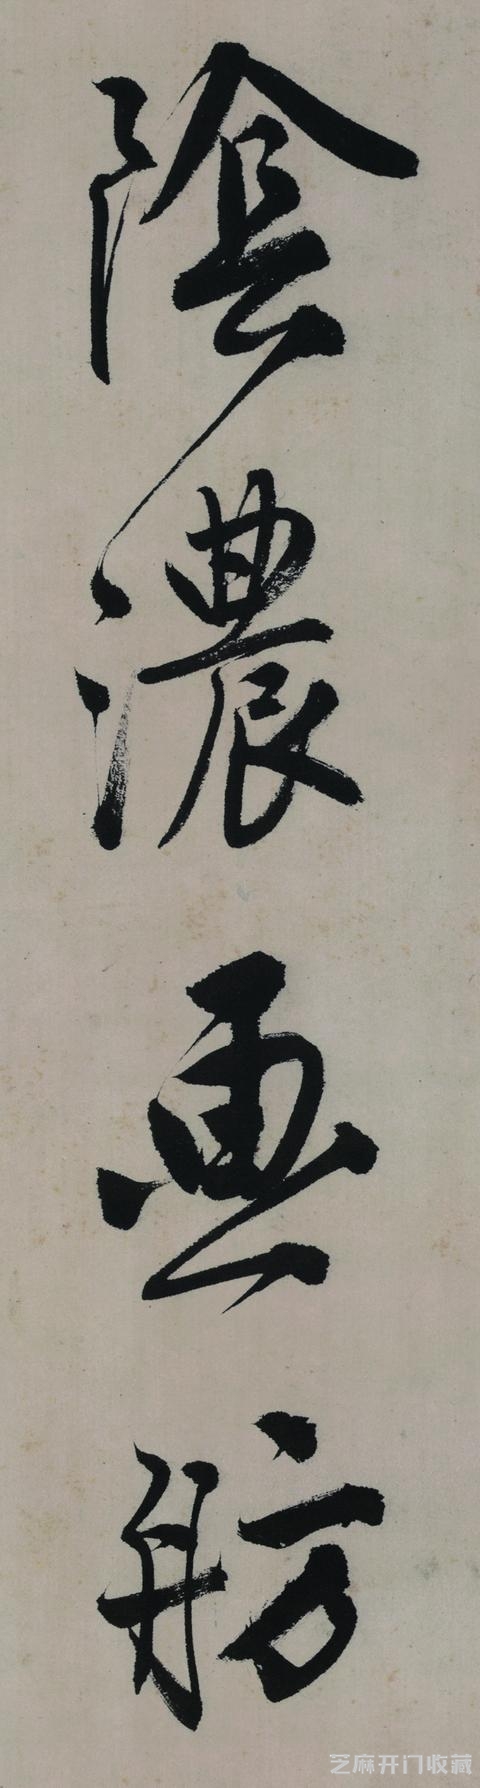 陰濃画舫
芝麻开门收藏